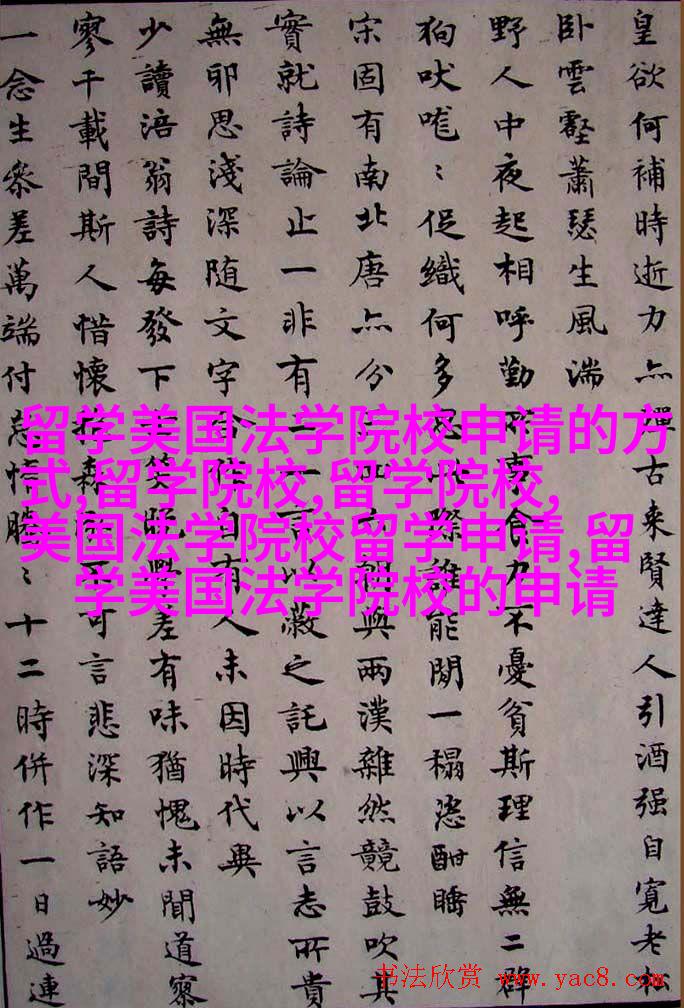 皇欲何補時逝力亦古来賢達人引酒强自寬老
卧雲壑蕭瑟生風湍
野人中夜起相呼勤食力不憂貧斯理信無二群
狗吠嘊:促織何多際誰能閒一榻恣酣睡
宋固有南北唐亦分興兩漢雜然競鼓吹其
實就詩論止一非有以蔽之託興以言志所貴
無邪思淺深随文字自有人未因時代異
少讀涪翁詩每發下笑差有味猶愧未聞道察
寥千載間斯人惜懷森不可言悲深知語妙
一念生參差萬端付勝:十二時併作一日過連
留学美国法学院校申请的方
式,留学院校,留学院校,
美国法学院校留学申请,留
学美国法学院校的申请
书法欣赏 www.yac8.com